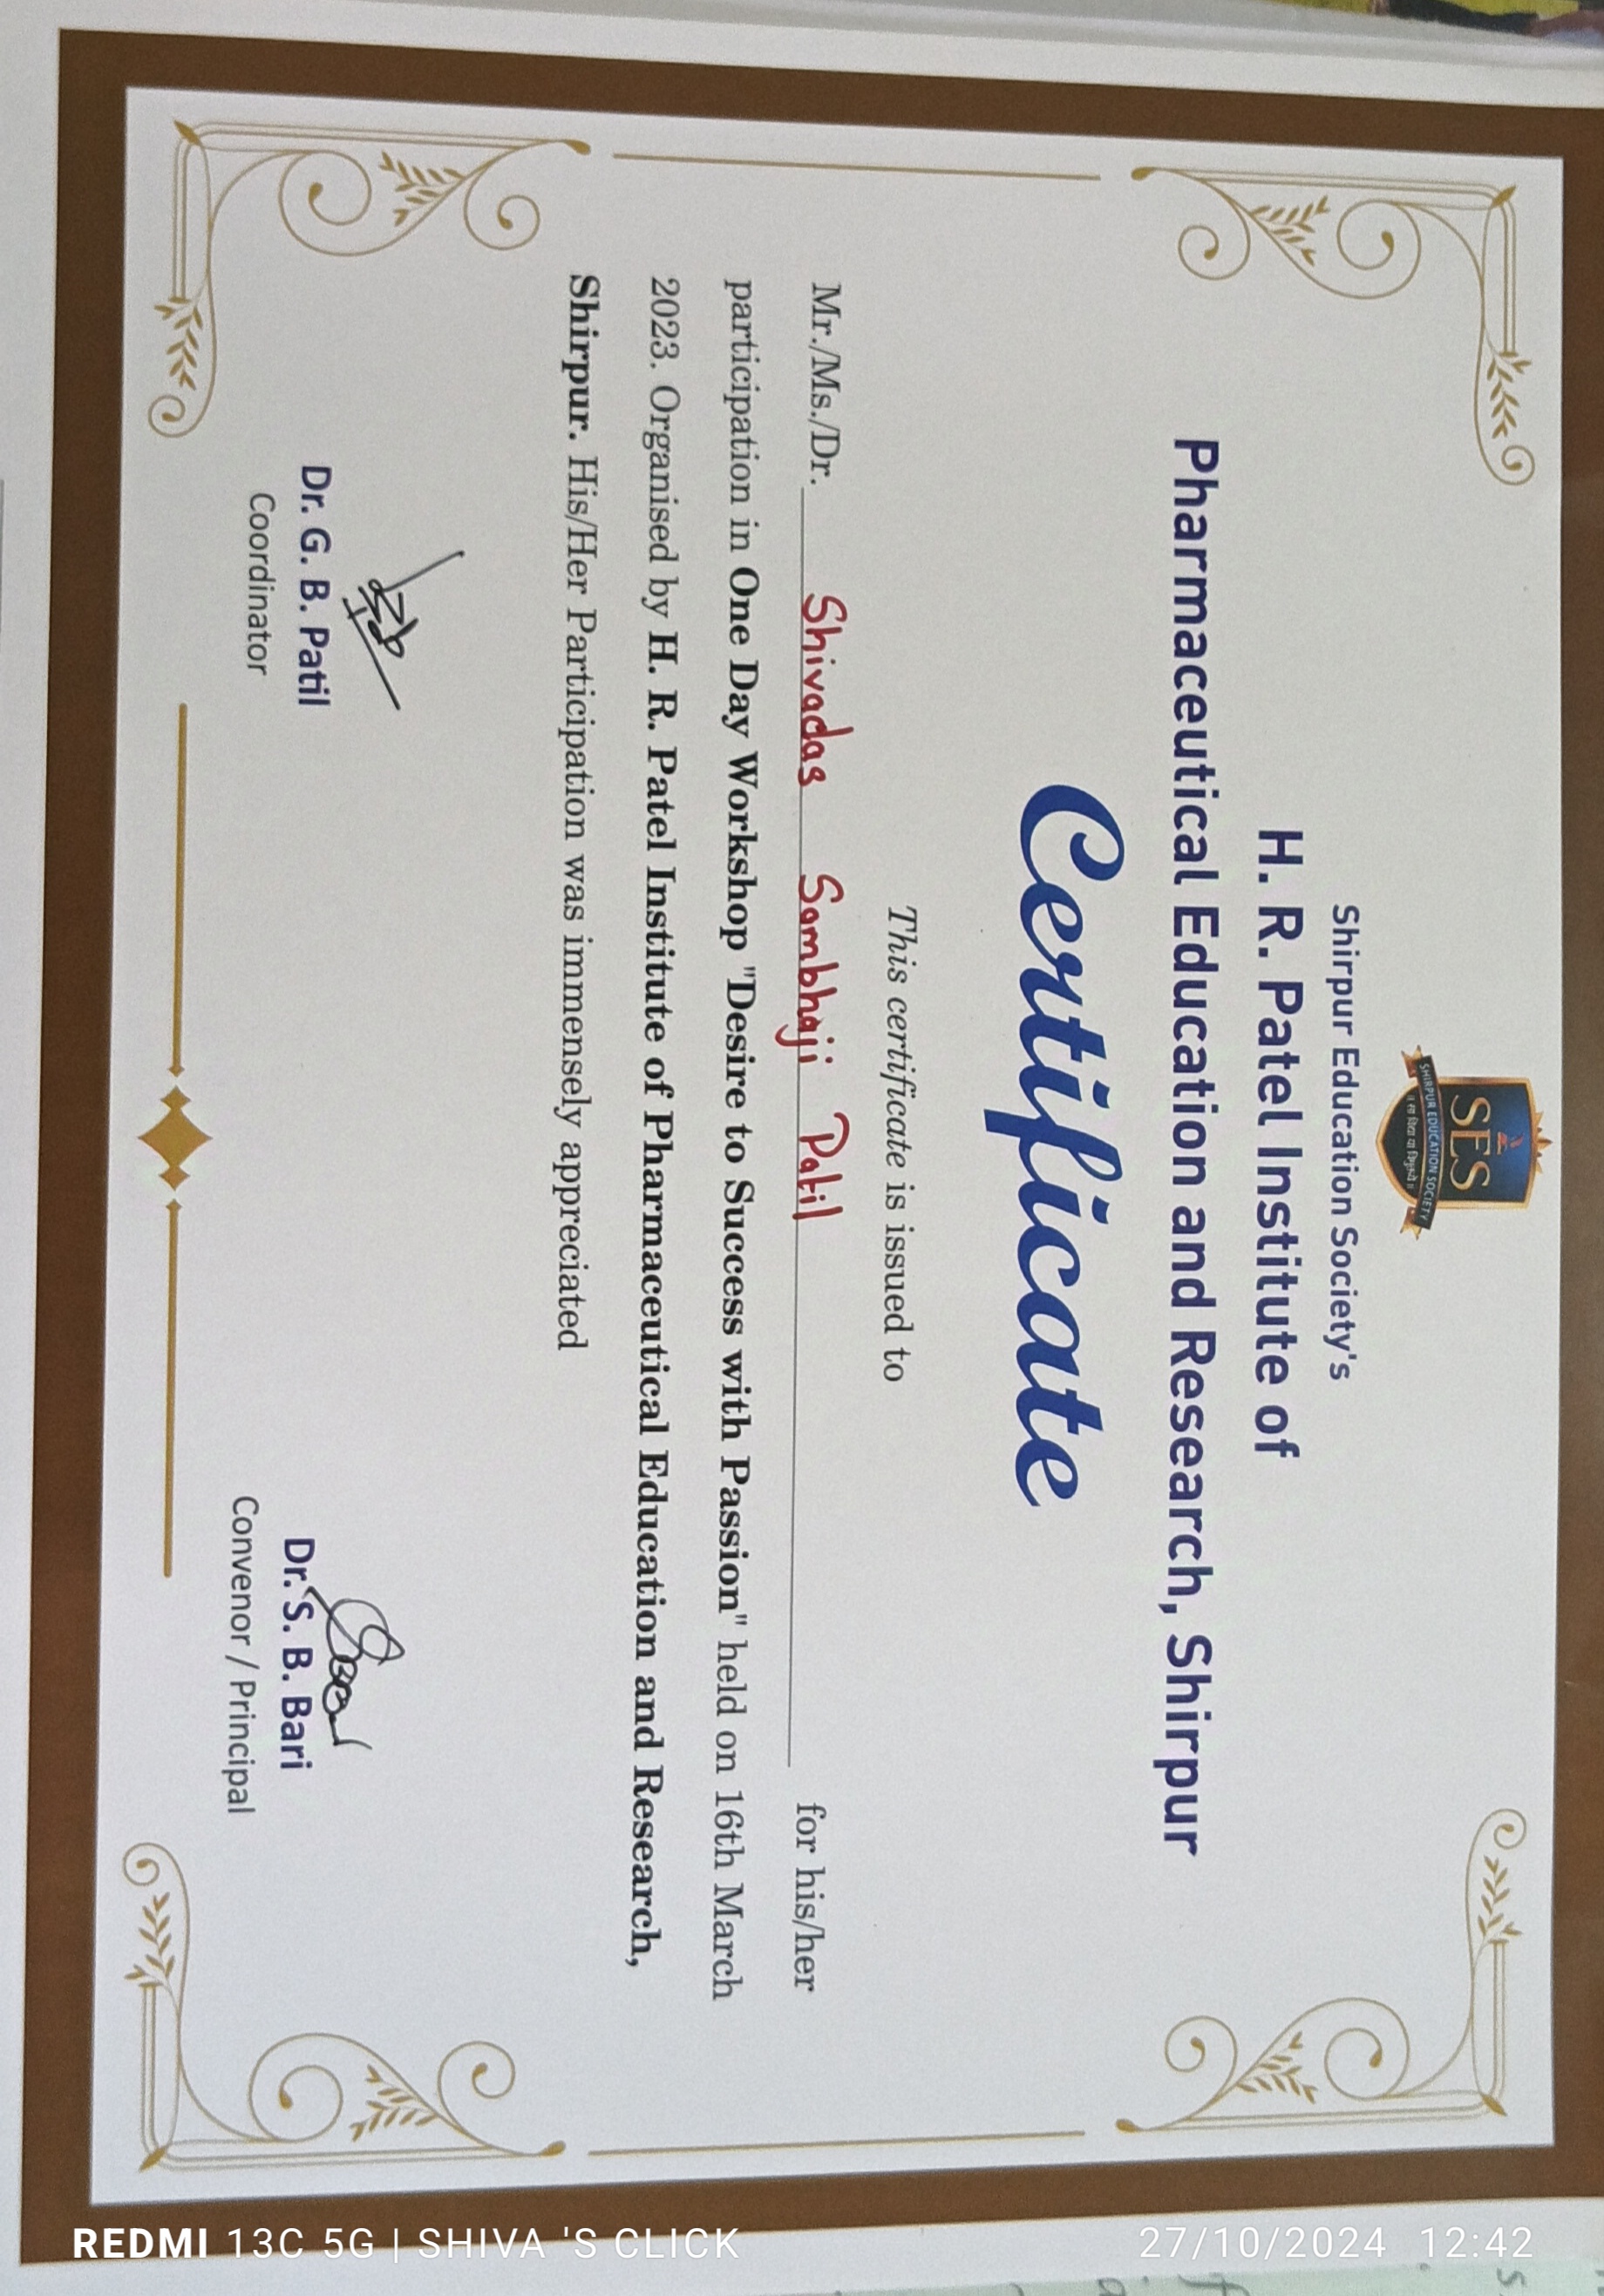 SES
SHIRPUR EDUCATION SOCIETY
॥ सा विद्या या विमुक्तये ॥
Shirpur Education Society's
H. R. Patel Institute of
Pharmaceutical Education and Research, Shirpur
Certificate
This certificate is issued to
Mr./Ms./Dr. Shivadas Sambhaji Patil for his/her
participation in One Day Workshop "Desire to Success with Passion" held on 16th March
2023. Organised by H. R. Patel Institute of Pharmaceutical Education and Research,
Shirpur. His/Her Participation was immensely appreciated
Dr. G. B. Patil
Coordinator
Dr. S. B. Bari
Convenor / Principal
REDMI 13C 5G | SHIVA 'S CLICK
27/10/2024 12:42